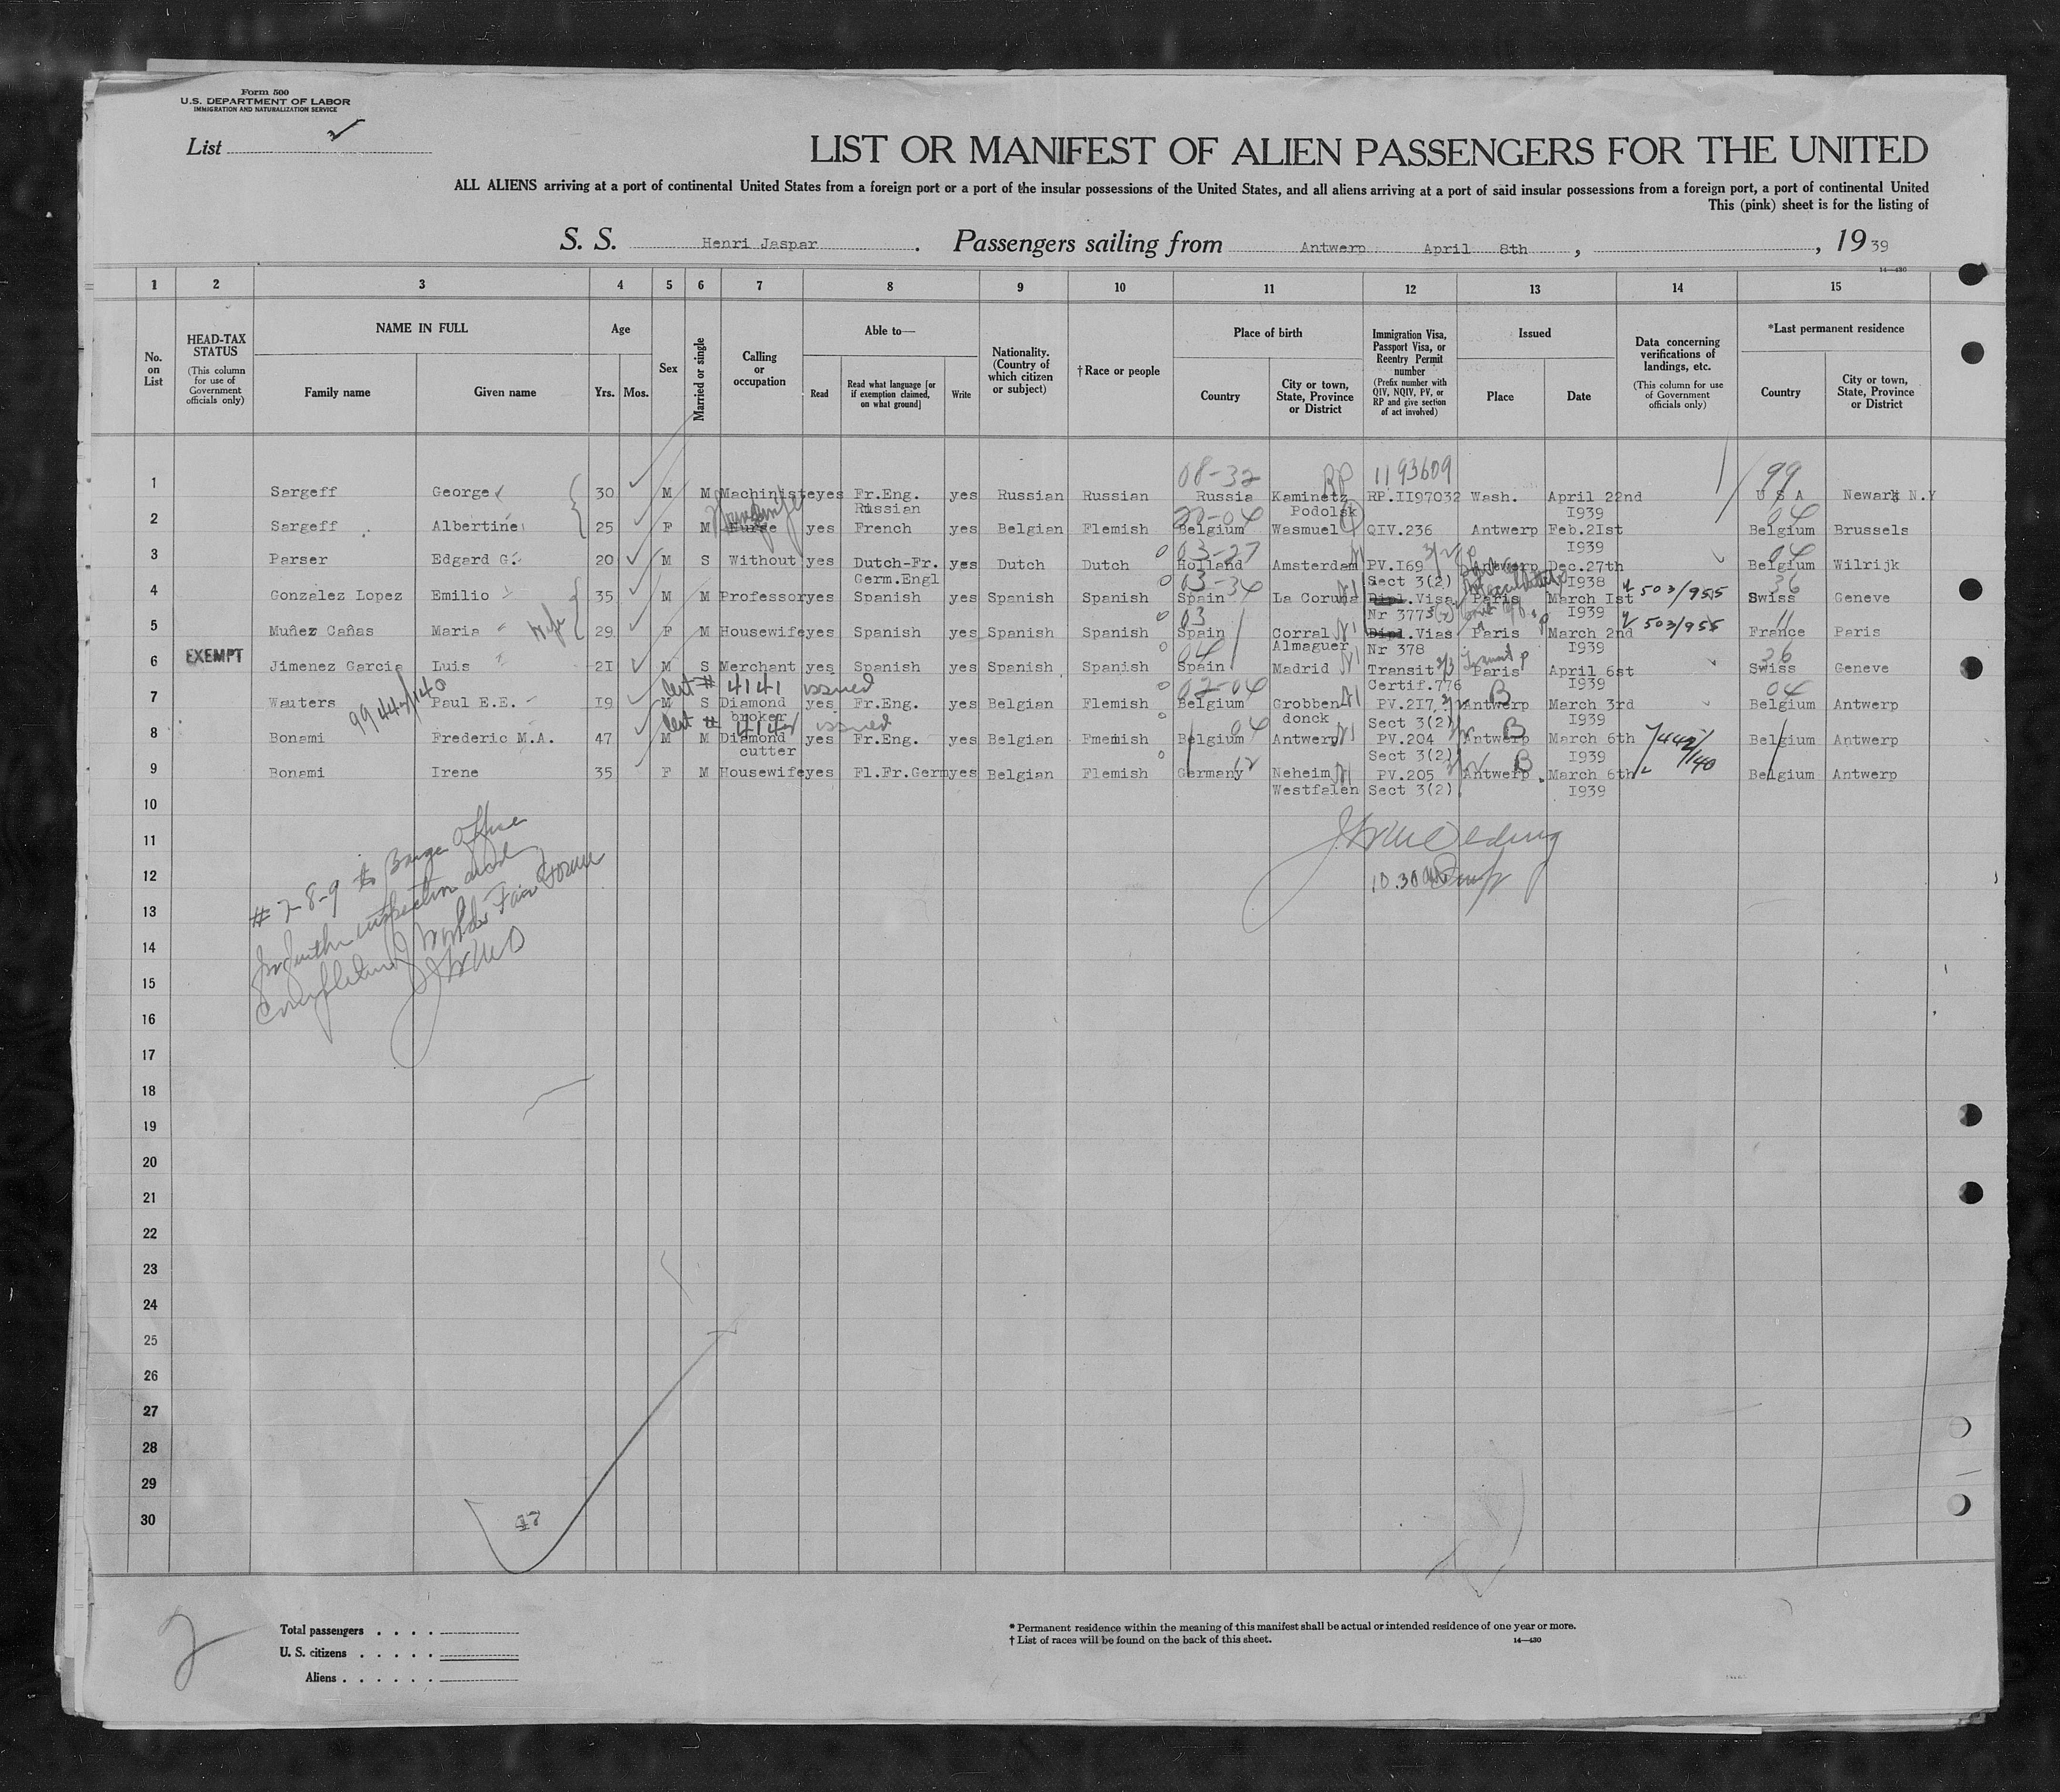 Form 500
U.S. DEPARTMENT OF LABOR
IMMIGRATION AND NATURALIZATION SERVICE
List 2
LIST OR MANIFEST OF ALIEN PASSENGERS FOR THE UNITED
ALL ALIENS arriving at a port of continental United States from a foreign port or a port of the insular possessions of the United States, and all aliens arriving at a port of said insular possessions from a foreign port, a port of continental United
This (pink) sheet is for the listing of
S. S. Henri Jaspar. Passengers sailing from Antwerp April 8th, , 1939
14—430
1 2 3 4 5 6 7 8 9 10 11 12 13 14 15
No. on List
HEAD-TAX STATUS (This column for use of Government officials only)
NAME IN FULL Family name Given name
Age Yrs. Mos.
Sex
Married or single
Calling or occupation
Able to— Read Read what language [or if exemption claimed, on what ground] Write
Nationality. (Country of which citizen or subject)
†Race or people
Place of birth Country City or town, State, Province or District
Immigration Visa, Passport Visa, or Reentry Permit number (Prefix number with QIV, NQIV, PV, or RP and give section of act involved)
Issued Place Date
Data concerning verifications of landings, etc. (This column for use of Government officials only)
*Last permanent residence Country City or town, State, Province or District
08-32 RP 1193609 99
1 Sargeff George 30 M M Machinist yes Fr.Eng. yes Russian Russian Russia Kaminetz RP.II97032 Wash. April 22nd U S A Newark N.Y
Russian Podolsk I939
04
2 Sargeff Albertine 25 F M Nurse yes French yes Belgian Flemish Belgium Wasmuel QIV.236 Antwerp Feb.2Ist Belgium Brussels
I939
03-27 04
3 Parser Edgard G. 20 M S Without yes Dutch-Fr. yes Dutch Dutch Holland Amsterdam PV.I69 Antwerp Dec.27th Belgium Wilrijk
Germ.Engl Sect 3(2) I938
03-34 36
4 Gonzalez Lopez Emilio 35 M M Professor yes Spanish yes Spanish Spanish Spain La Coruna Dipl.Visa Paris March Ist 503/955 Swiss Geneve
Nr 377 I939
03 11
5 Muñez Cañas Maria Wife 29 F M Housewife yes Spanish yes Spanish Spanish Spain Corral Dipl.Vias Paris March 2nd 503/955 France Paris
Almaguer Nr 378 I939
04 36
6 EXEMPT Jimenez Garcia Luis 2I M S Merchant yes Spanish yes Spanish Spanish Spain Madrid Transit Paris April 6st Swiss Geneve
Certif.776 I939
Cert # 4141 issued 02-04 04
7 Wauters 99 442/140 Paul E.E. I9 M S Diamond yes Fr.Eng. yes Belgian Flemish Belgium Grobben PV.2I7 Antwerp B March 3rd Belgium Antwerp
broker donck Sect 3(2) I939
Cert # 4142 issued 04
8 Bonami Frederic M.A. 47 M M Diamond yes Fr.Eng. yes Belgian Fmemish Belgium Antwerp PV.204 Antwerp B March 6th 7442/140 Belgium Antwerp
cutter Sect 3(2) I939
12
9 Bonami Irene 35 F M Housewife yes Fl.Fr.Germ yes Belgian Flemish Germany Neheim PV.205 Antwerp B March 6th Belgium Antwerp
Westfalen Sect 3(2) I939
10
11
12
10.30 am
# 7-8-9 to Barge Office
for further inspection and
completion of World's Fair Forms
13
14
15
16
17
18
19
20
21
22
23
24
25
26
27
28
29
30
47
2
Total passengers . . . .
U. S. citizens . . . . .
Aliens . . . . . .
* Permanent residence within the meaning of this manifest shall be actual or intended residence of one year or more.
† List of races will be found on the back of this sheet.
14—430